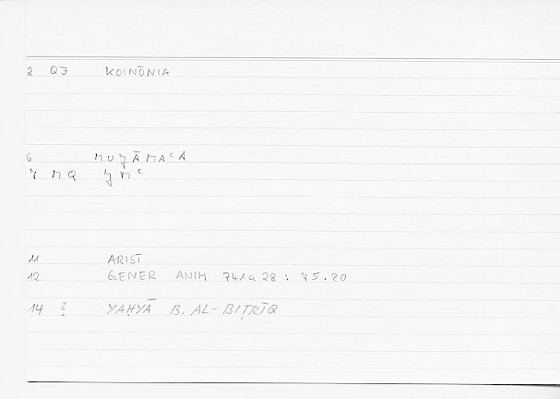 2 QJ KOINŌNIA
6 MUǦĀMAᶜA
7 MQ ǦMᶜ
11 ARIST
12 GENER ANIM 741a28 : 75.20
14 ? YAḤYĀ B. AL-BIṬRĪQ